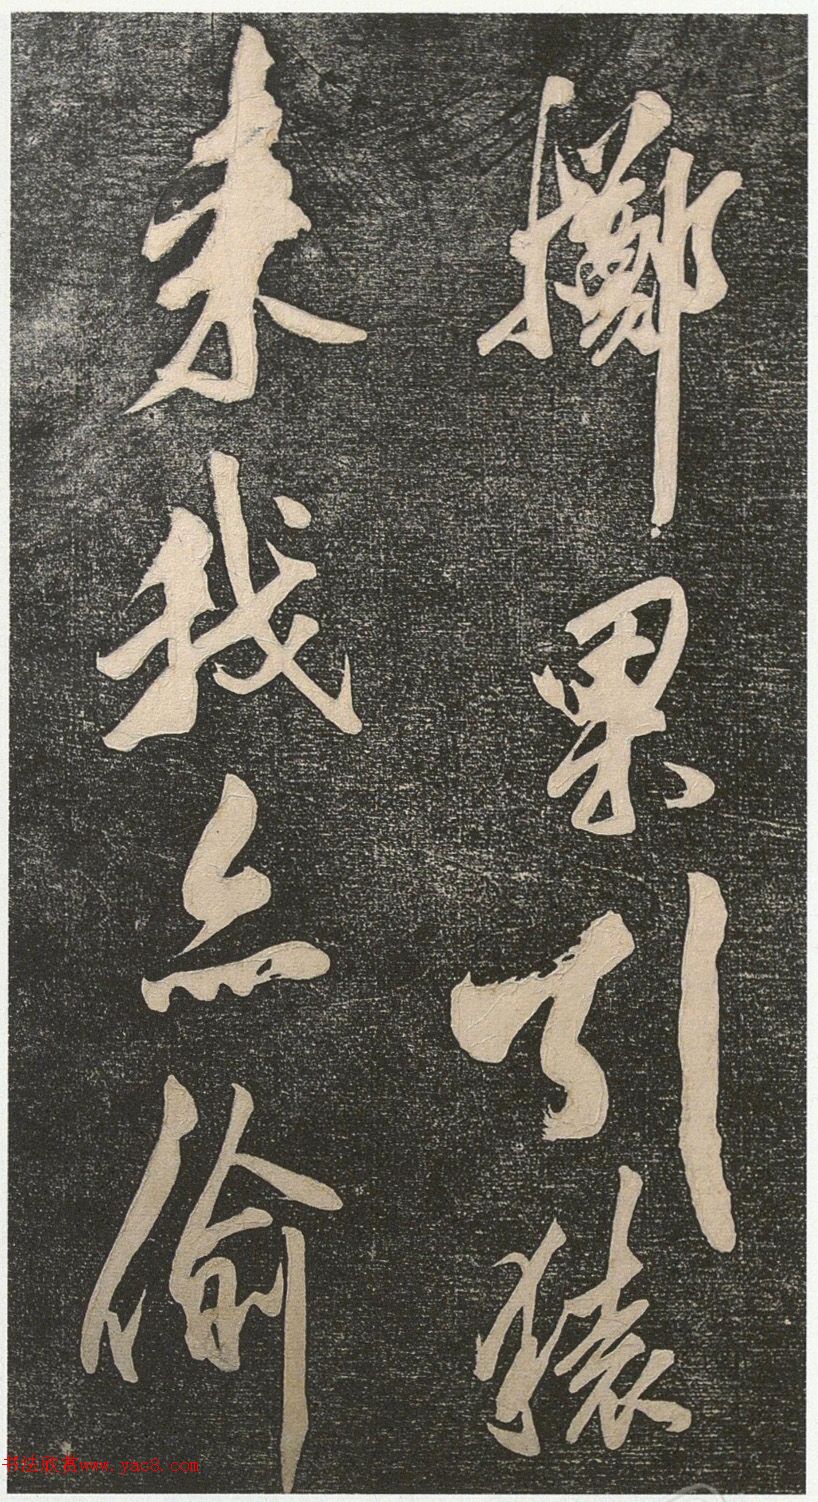 掷果引猿
来我亦偷
书法欣赏www.yac8.com